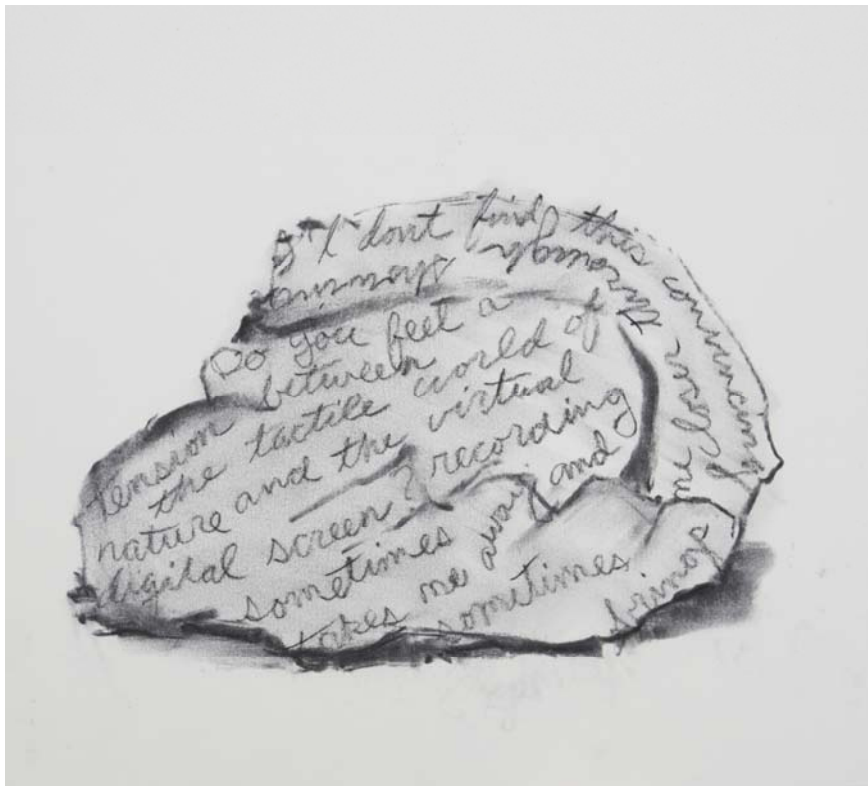 I dont find this convincing
Do you feel a
tension between
the tactile world of
nature and the virtual
digital screen? recording
sometimes
takes me away and
sometimes brings
me closer through